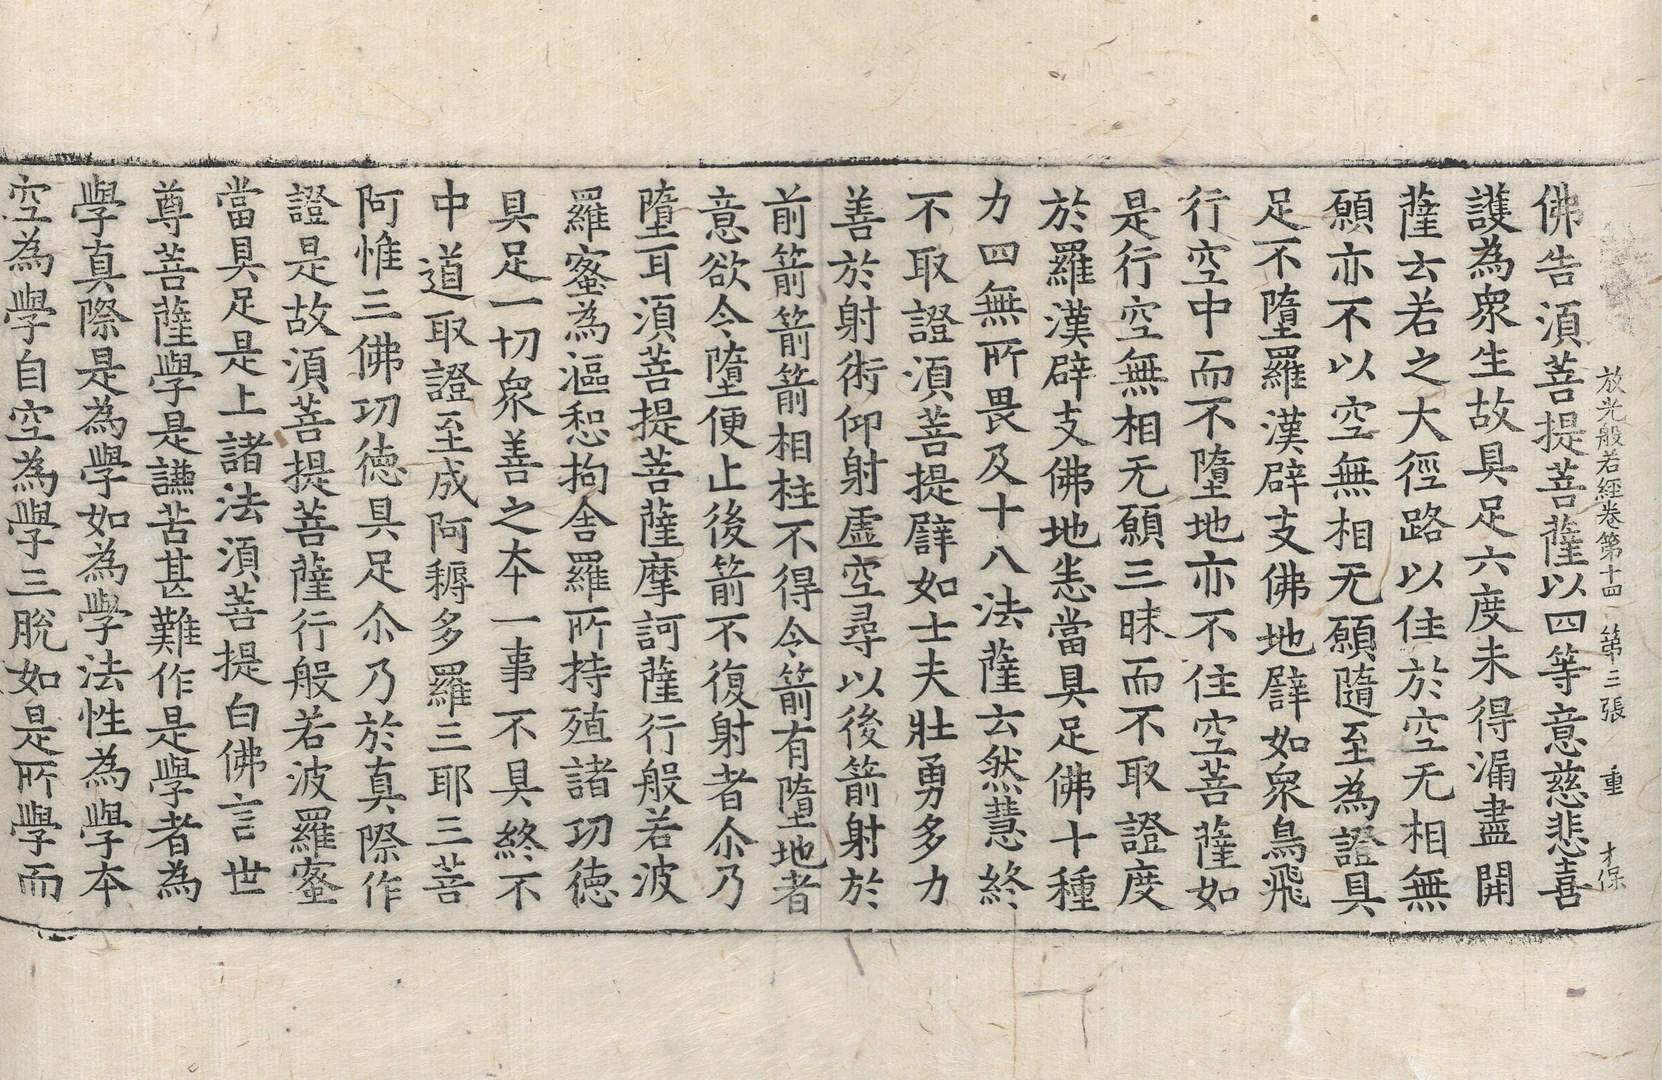 放光般若經卷第十四 第三張 重 才保
佛告須菩提菩薩以四等意慈悲喜
護為衆生故具足六度未得漏盡開
薩云若之大徑路以住於空无相無
願亦不以空無相无願隨至為證具
足不墮羅漢辟支佛地譬如衆鳥飛
行空中而不墮地亦不住空菩薩如
是行空無相无願三昧而不取證度
於羅漢辟支佛地恙當具足佛十種
力四無所畏及十八法薩云然慧終
不取證須菩提譬如士夫壯勇多力
善於射術仰射虛空尋以後箭射於
前箭箭箭相柱不得令箭有墮地者
意欲令墮便止後箭不復射者尒乃
墮耳須菩提菩薩摩訶薩行般若波
羅蜜為漚惒拘舍羅所持殖諸功德
具足一切衆善之本一事不具終不
中道取證至成阿耨多羅三耶三菩
阿惟三佛功德具足尒乃於真際作
證是故須菩提菩薩行般若波羅蜜
當具足是上諸法須菩提白佛言世
尊菩薩學是謙苦甚難作是學者為
學真際是為學如為學法性為學本
空為學自空為學三脫如是所學而